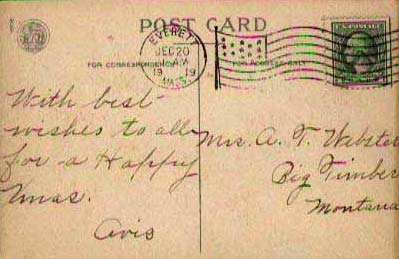 POST CARD
EVERETT
DEC 20
AM
19 19
MASS.
FOR CORRESPONDENCE
FOR ADDRESS ONLY
With best
wishes to all
for a Happy
Xmas.
Avis
Mrs. A. T. Webster
Big Timber
Montana